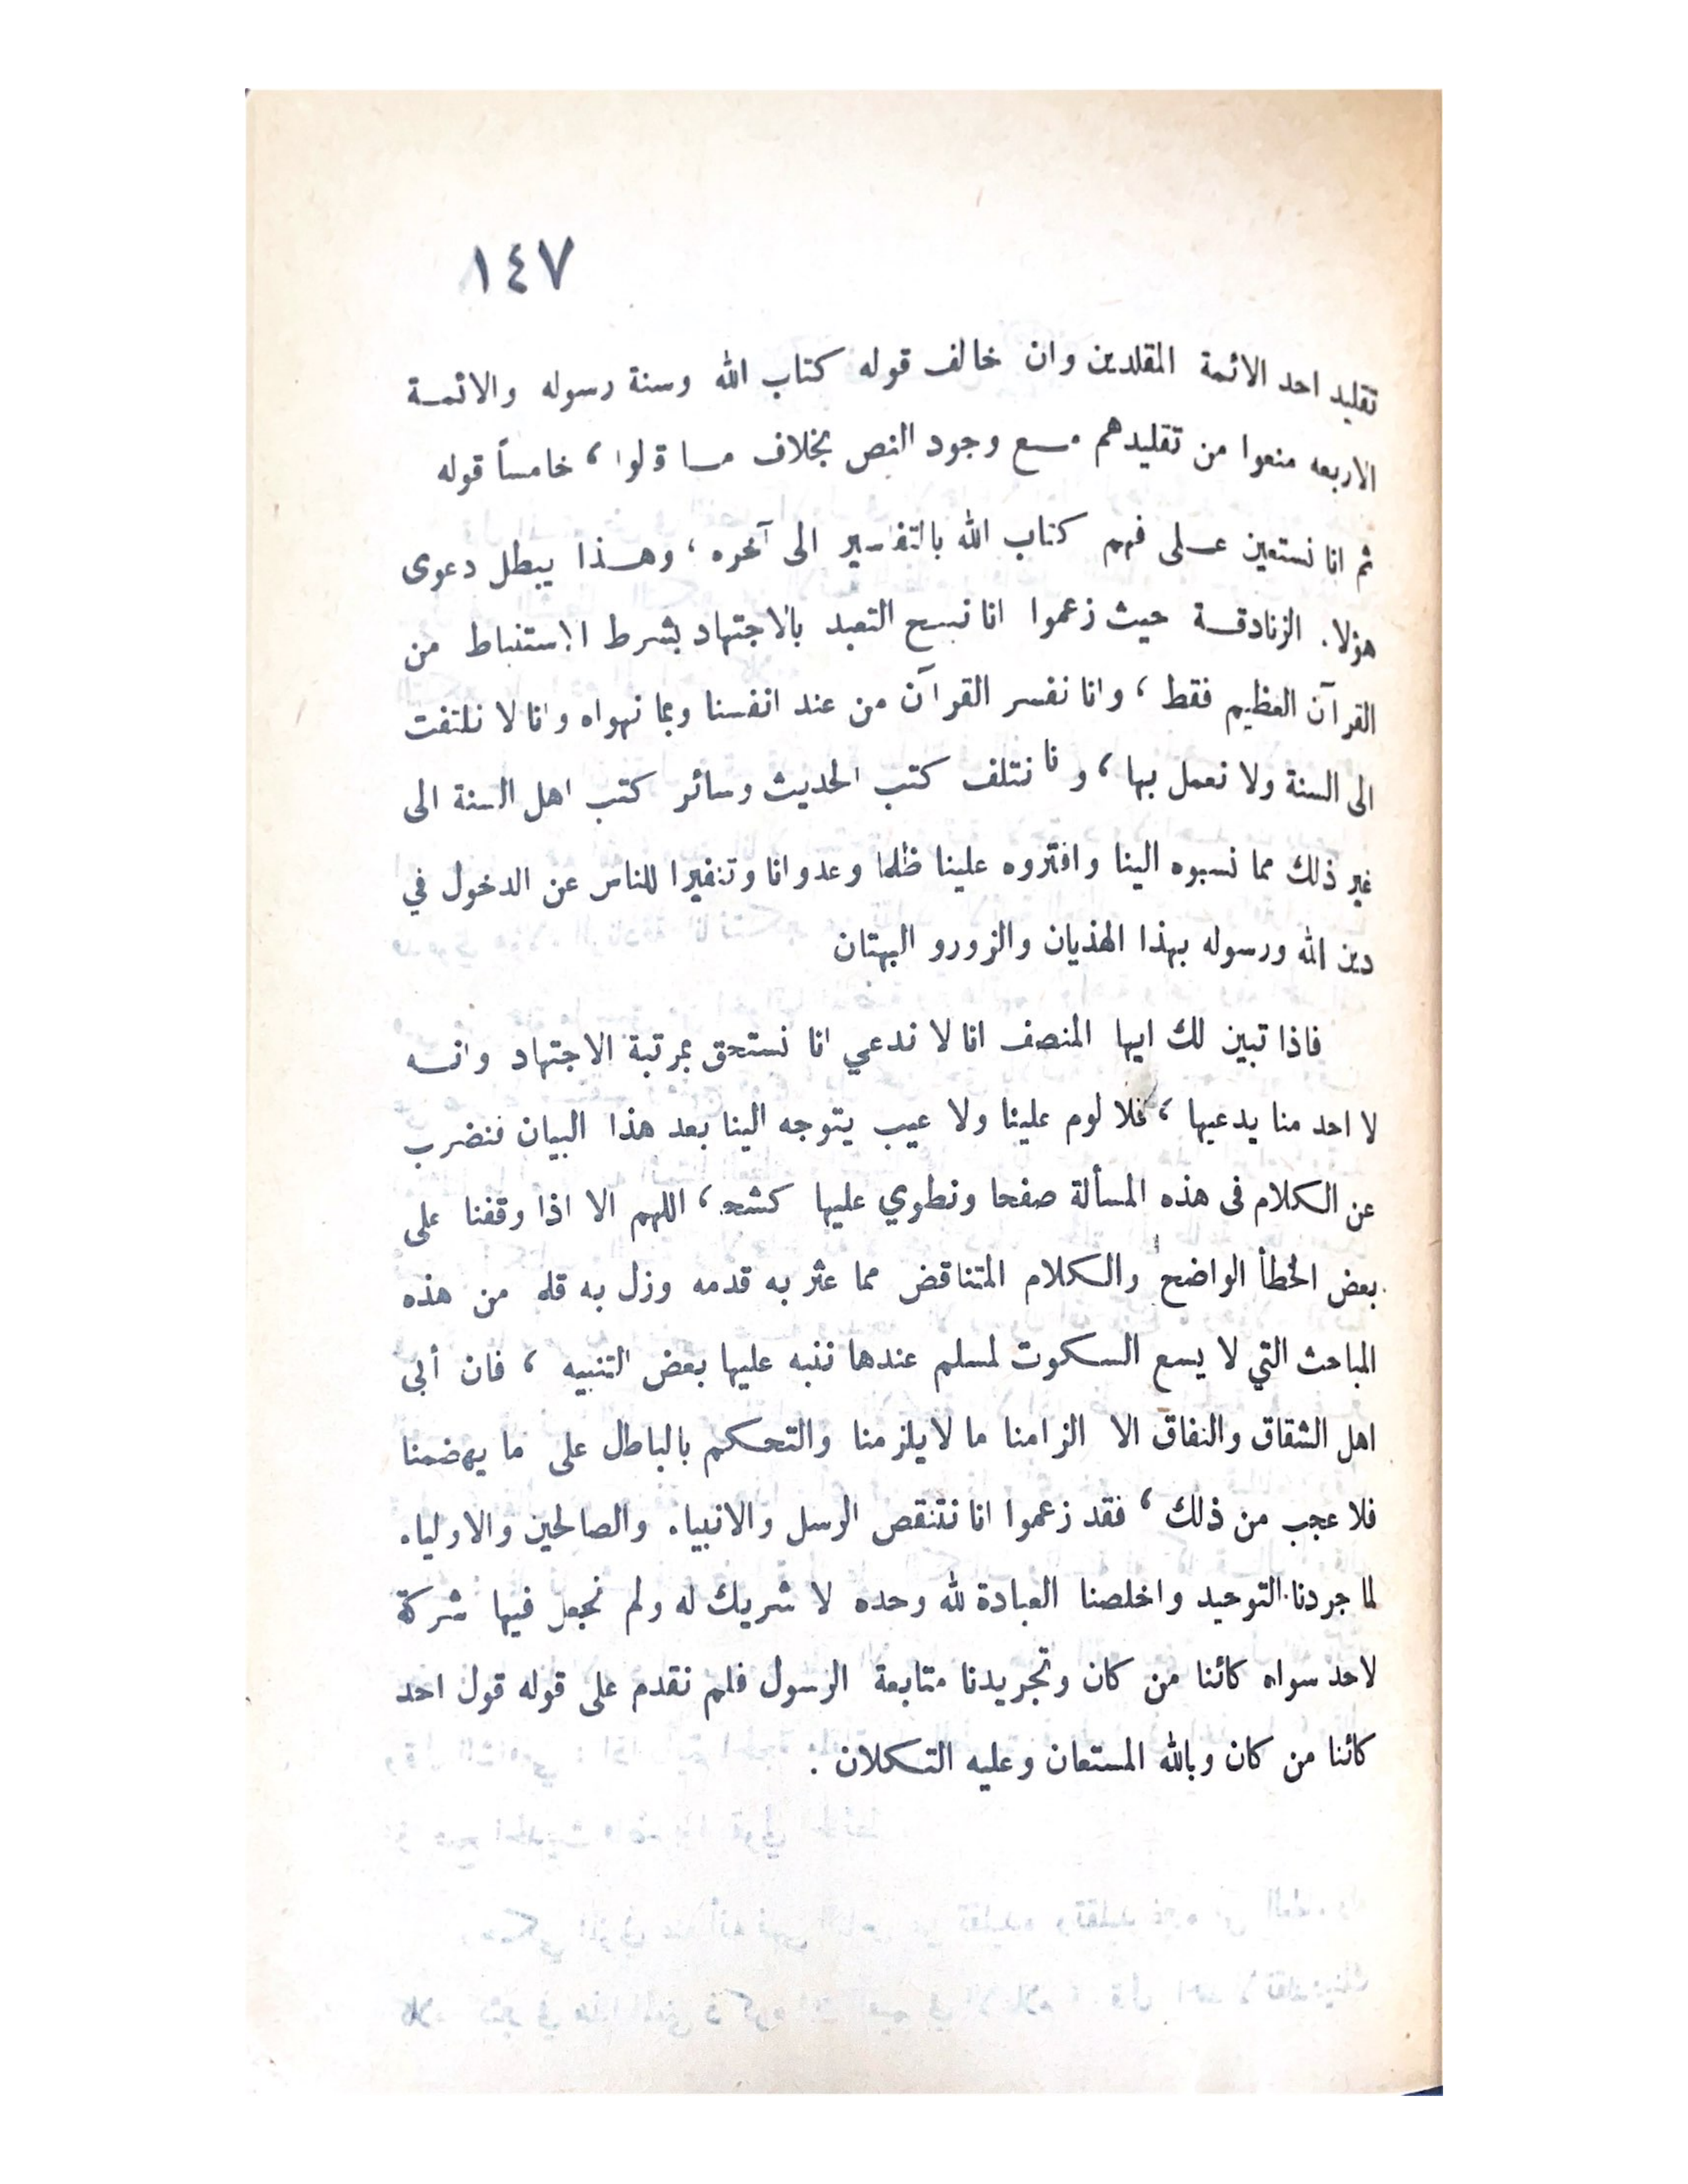 ١٤٧
تقليد احد الائمة المقلدين وان خالف قوله كتاب الله وسنة رسوله والائمة
الاربعه منعوا من تقليدهم مع وجود النص بخلاف ما قالوا ، خامساً قوله
ثم انا نستعين على فهم كتاب الله بالتفاسير الى آخره ، وهذا يبطل دعوى
هؤلاء الزنادقة حيث زعموا انا نبيح التعبد بالاجتهاد بشرط الاستنباط من
القرآن العظيم فقط ، وانا نفسر القرآن من عند انفسنا وبما نهواه وانا لا نلتفت
الى السنة ولا نعمل بها ، وانا نتلف كتب الحديث وسائر كتب اهل السنة الى
غير ذلك مما نسبوه الينا وافتروه علينا ظلما وعدوانا وتنفيرا للناس عن الدخول في
دين الله ورسوله بهذا الهذيان والزورو البهتان
فاذا تبين لك ايها المنصف انا لا ندعي انا نستحق بمرتبة الاجتهاد وانه
لا احد منا يدعيها ، فلا لوم علينا ولا عيب يتوجه الينا بعد هذا البيان فنضرب
عن الكلام فى هذه المسألة صفحا ونطوي عليها كشحا ، اللهم الا اذا وقفنا على
بعض الخطأ الواضح والكلام المتناقض مما عثر به قدمه وزل به قلمه من هذه
المباحث التي لا يسع السكوت لمسلم عندها ننبه عليها بعض التنبيه ، فان أبى
اهل الشقاق والنفاق الا الزامنا ما لايلزمنا والتحكم بالباطل على ما يهضمنا
فلا عجب من ذلك ، فقد زعموا انا نتنقص الرسل والانبياء والصالحين والاولياء
لما جردنا التوحيد واخلصنا العبادة لله وحده لا شريك له ولم نجعل فيها شركة
لاحد سواه كائنا من كان وتجريدنا متابعة الرسول فلم نقدم على قوله قول احد
كائنا من كان وبالله المستعان وعليه التكلان .